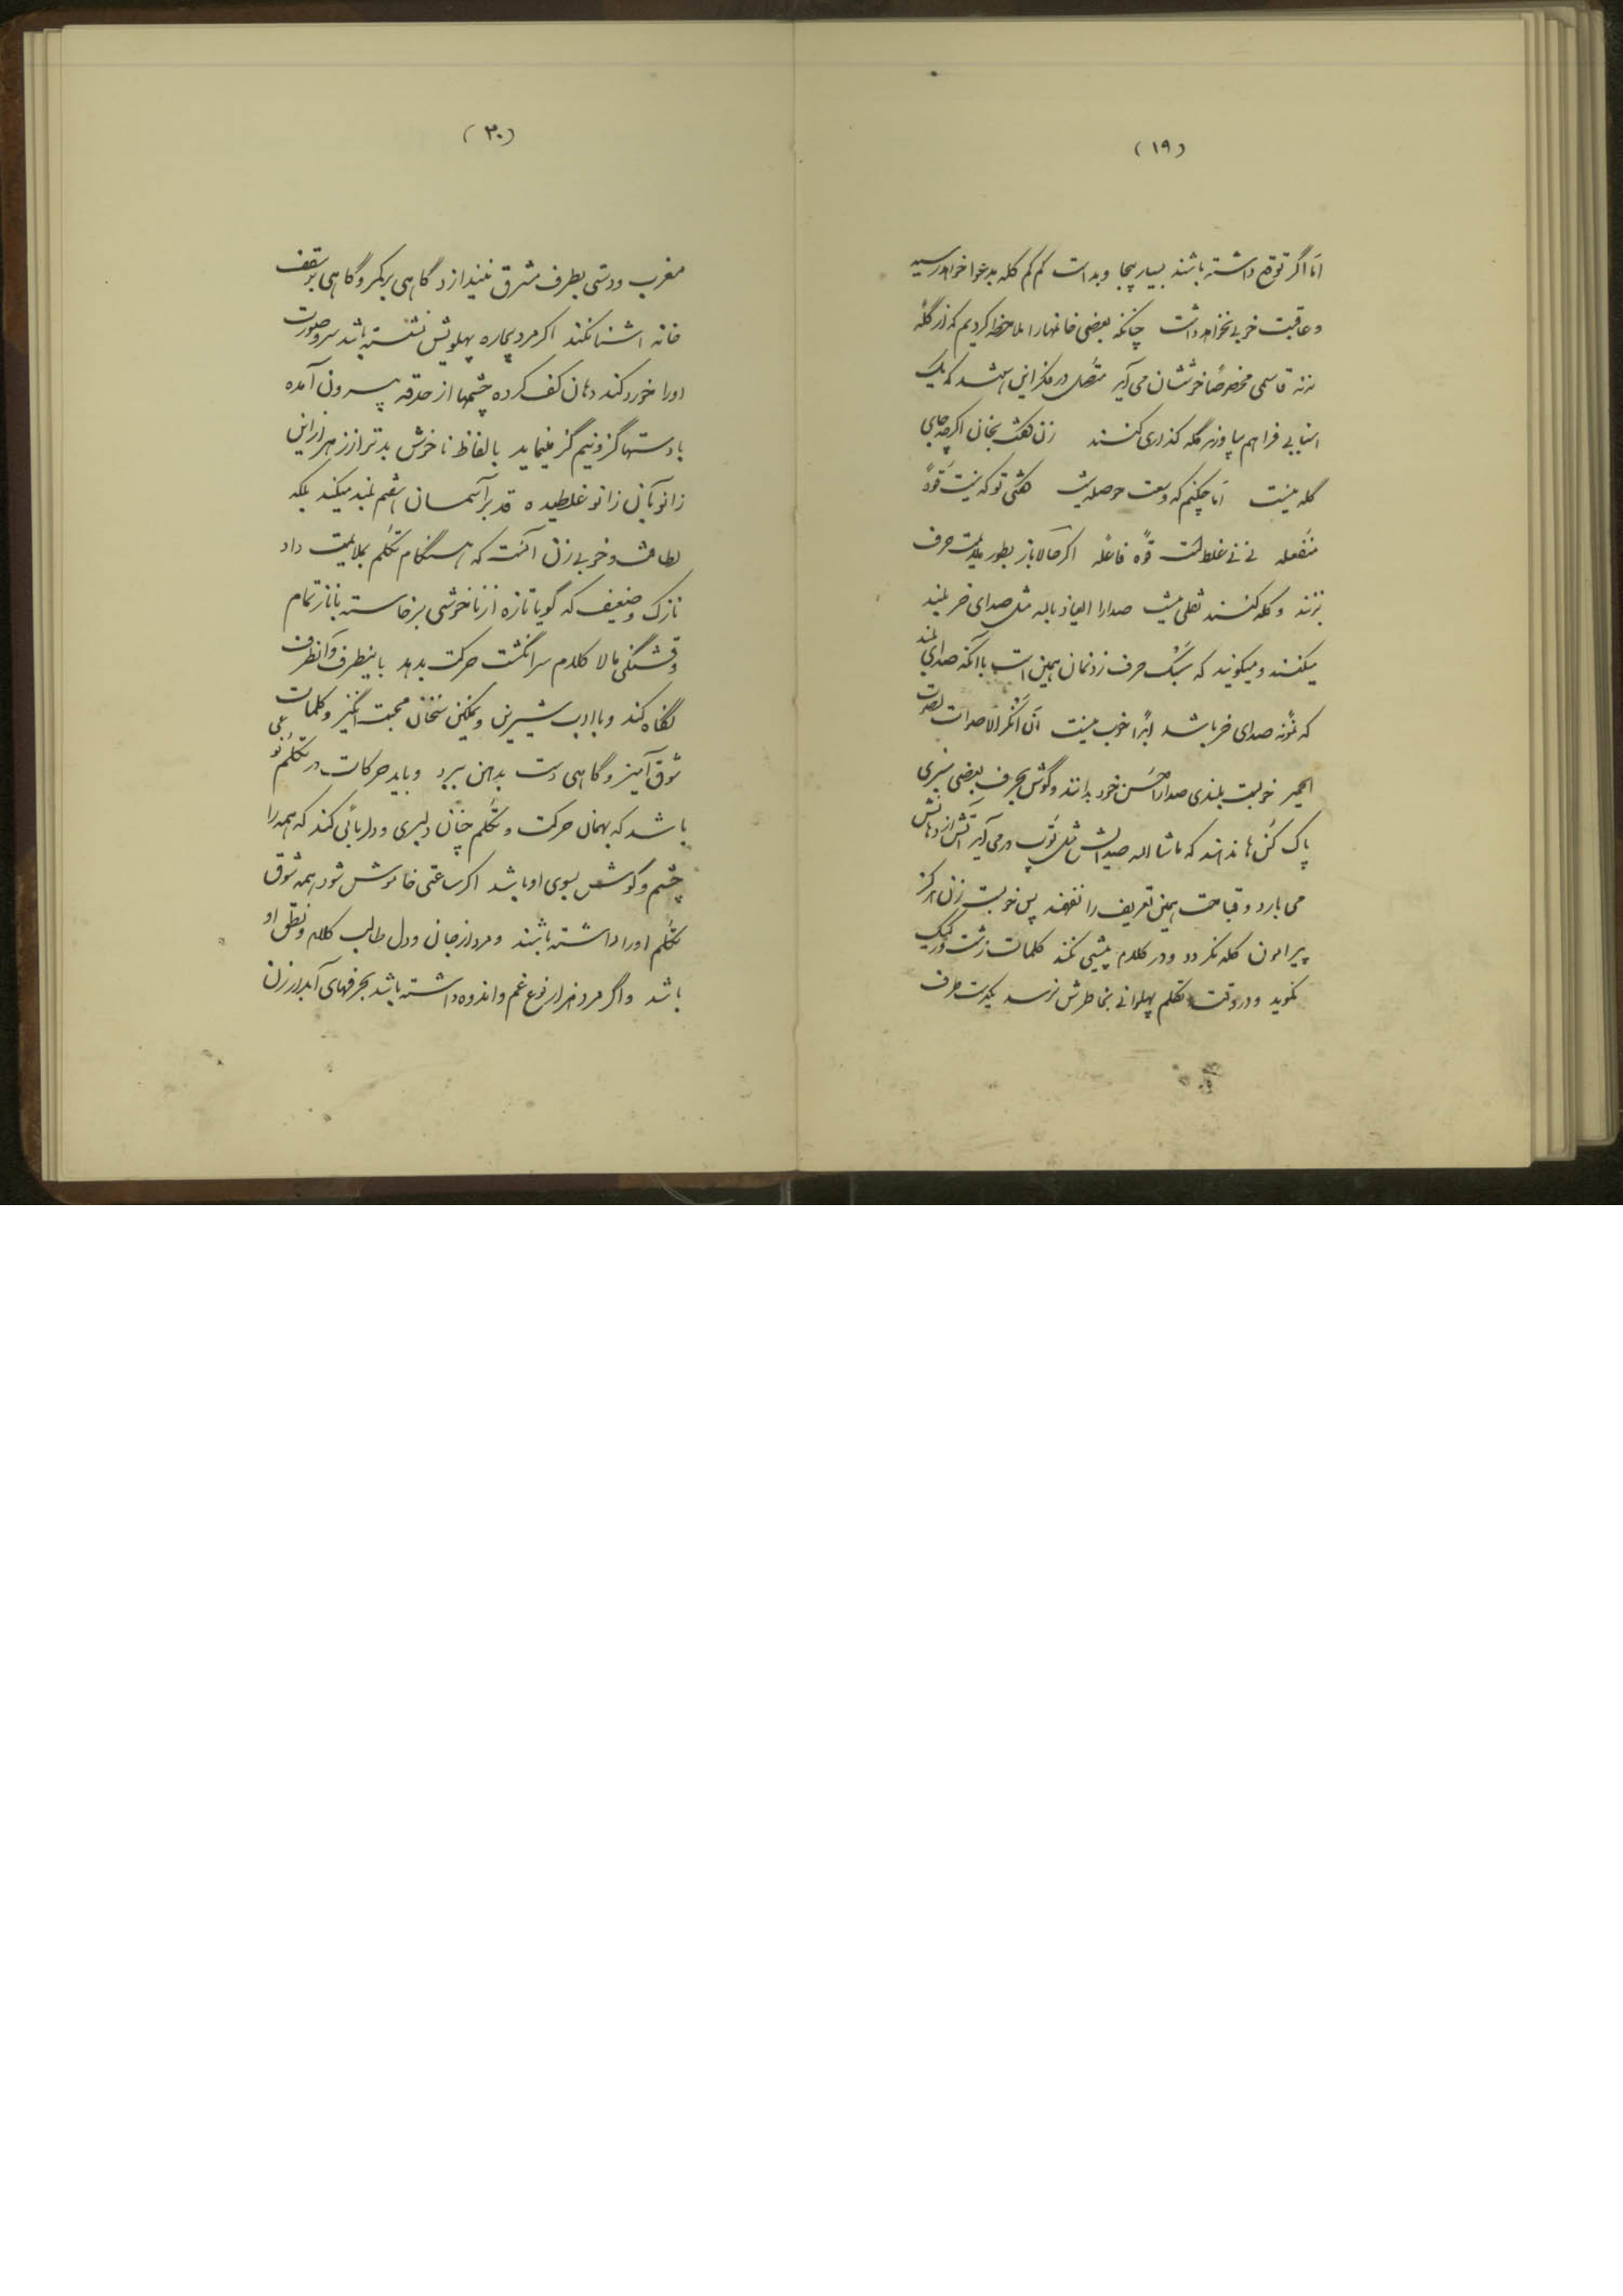 (۱۹)
اما اگر توقع داشته باشند بسیار بیجا و بد است کم کم گله بدعوا خواهد رسید
و عاقبت خوبی نخواهد داشت چنانکه بعضی خانمها را ملاحظه کردیم که از گله
ننه قاسمی مخصوصاً خوششان می آید متصل در فکر این هستند که یک
اسبابی فراهم بیاورند گله گذاری کنند زن
گله نیست اما چکنم که وسعت حوصله نیست تو که نیست قوهٔ
منفعله نی نی غلط گفت قوه فاعله اگر حالا باز بطور ملایمت حرف
بزنند و گله کنند نقلی نیست صدا را العیاذ بالله مثل صدای خر بلند
میکنند و میگویند که سبک حرف زدنمان همین است با آنکه صدای بلند
که نمونه صدای خر باشد ابداً خوب نیست ان انکر الاصوات لصوت
الحمیر خوبست بلندی صدا را حسن خود ندانند و گوش بحرف بعضی سبزی
پاک کن ها ندهند که ماشاء الله صدایش مثل توپ در می آید آتش از دهانش
می بارد و قباحت همین تعریف را نفهمند پس خوبست زن هرگز
پیرامون گله نگردد و در کلام پیشی نکند کلمات زشت و رکیک
نگوید و در وقت تکلم پهلوانی بخاطرش نرسد یکدست طرف
(۲۰)
مغرب و دستی بطرف مشرق نیندازد گاهی بر کمر و گاهی بر سقف
خانه آشنا نکند اگر مرد بیچاره پهلویش نشسته باشد سر و صورت
او را خورد کند دهان کف کرده چشمها از حدقه بیرون آمده
با دستها گز و نیم گز مینماید بالفاظ ناخوش بدتر از زهر از این
زانو بآن زانو غلطیده قد بر آسمان هفتم بلند میکند بلکه
لطافت و خوبی زن آنست که هنگام تکلم بملایمت داد
نازک و ضعیف که گویا تازه از ناخوشی برخاسته با ناز تمام
و قشنگی مالا کلام سر انگشت حرکت بدهد باینطرف و آنطرف
نگاه کند و با ادب شیرین و نمکین سخنان محبت انگیز و کلمات
شوق آمیز و گاهی دست بدهن ببرد و باید حرکات در تکلم نوعی
باشد که بهمان حرکت و تکلم چنان دلبری و دلربائی کند که همه را
چشم و گوش بسوی او باشد اگر ساعتی خاموش شود همه شوق
تکلم او را داشته باشند و مرد از جان و دل طالب کلام و نطق او
باشد و اگر مرد هزار نوع غم و اندوه داشته باشد بحرفهای آبدار زن